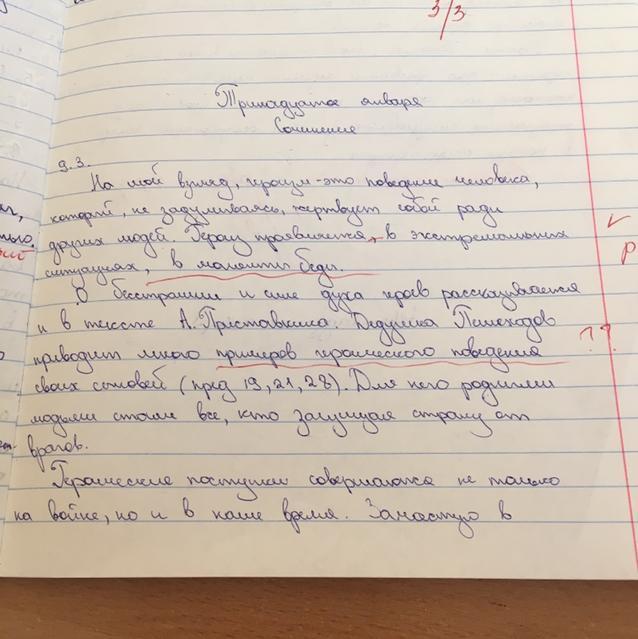 3/3
Тринадцатое января
Сочинение
9.3.
На мой взгляд, героизм - это поведение человека,
который, не задумываясь, жертвует собой ради
других людей. Героизм проявляется, в экстремальных
ситуациях, в моменты беды.
О бесстрашии и силе духа героев рассказывается
и в тексте А. Приставкина. Дедушка Пешеходов
приводит много примеров героического поведения
своих сыновей (пред 19, 21, 28). Для него родными
людьми стали все, кто защищал страну от
врагов.
Героические поступки совершаются не только
на войне, но и в наше время. Зачастую в
V
р
??